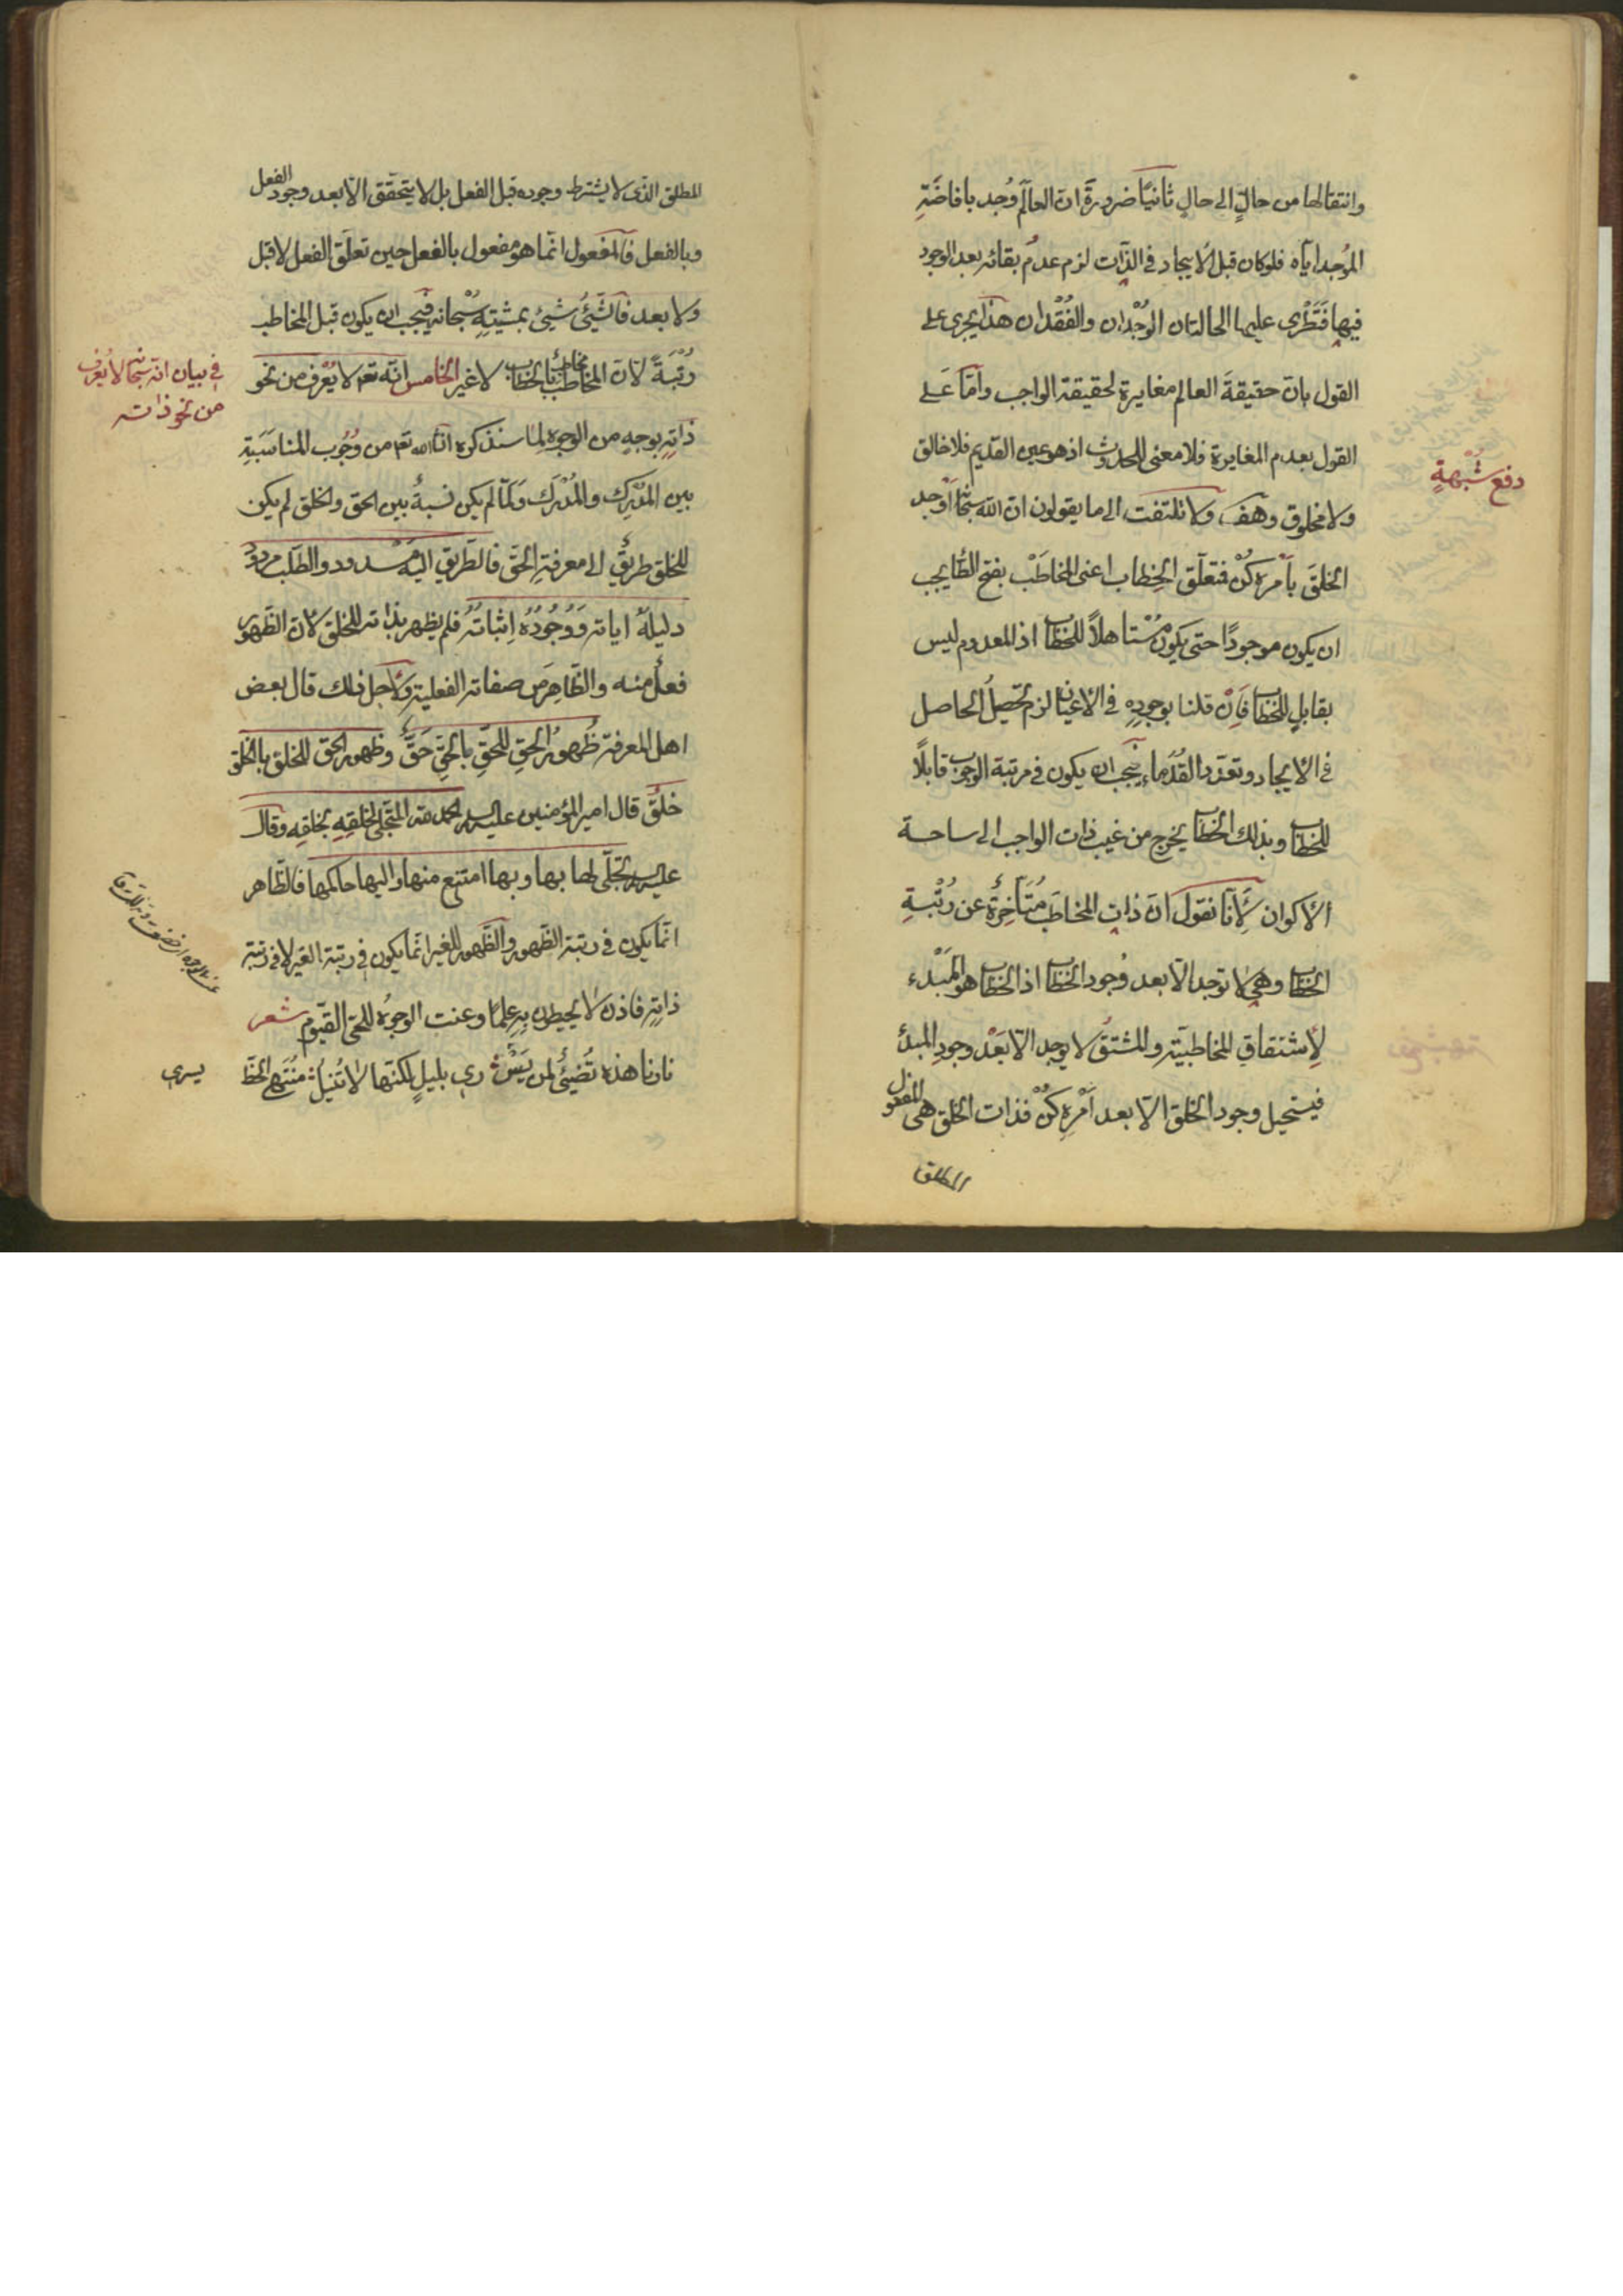 وانتقالها من حالٍ الى حالٍ ثانيًا ضرورةَ ان العالَم وُجد بافاضَةِ
الموُجد ايّاه فلو كان قبل الايجاد في الذّات لزم عدمُ بقائه بعد الوجود
فيها فتطرى عليها الحالتان الوُجْدان والفُقْدان هذا يجرى على
القول بانّ حقيقةَ العالم مغايرة لحقيقة الواجب وامّا عَلى
القول بعدم المغايرة فلا معنى للحدوث اذ هو عين القديم فلا خالق
ولا مخلوق وهف ولا تلتفت الى ما يقولون ان الله سبحانه اَوْجد
الخلقَ بأمره كُنْ فتعلّق الخِطاب اعنى المخاطَب بفتح الطّا يجب
ان يكون موجودًا حتى يكون مُسْتاهلاً للخطاب اذ المعدوم ليس
بقابلٍ للخطاب فَاِنْ قلنا بوجودِه في الاعيان لزم تحصيلُ الحاصل
في الايجاد وتعدّد القُدَماء فيجب ان يكون في مرتبة الوجوب قابلًا
للخطاب وبذلك الخطاب يخرج من غيب ذات الواجب الى ساحة
الأكوان لِأَنّا نقول انّ ذات المخاطَب مُتَأخِرةٌ عن رُتْبةِ
الخطاب وهى لا توجد الّا بعد وُجود الخطاب اذ الخطاب هو المَبْدء
لِاشتقاقِ المخاطبيّة والمشتقُ لا يوجد الّا بَعْد وجودِ المبدئ
فيستحيل وجود الخلق الّا بعد اَمْرِه كُنْ فذات الخلق هى المفعول
المطلق
دفع شُبْهةٍ
المطلق الذّى لا يشترط وجوده قبل الفعل بل لا يتحقّق الّا بعد وجود الفعل
وبالفعل فالمفعول انّما هو مفعول بالفعل حين تعلّق الفعل لا قبل
ولا بعد فالشّيئُ شيئ بمشيتِهِ سُبْحانه فيجب ان يكون قبل المخاطب
رُتْبَةً لانّ المخاطب مخاطبٌ بالخطاب لا غير الخامس انّه تعه لا يُعْرف من نحو
ذاتِهِ بوجهٍ من الوجوه لِما سنذكره انشالله تعه من وُجُوب المناسَبَةِ
بين المُدْرِك والمُدْرَك وَلمّا لم يكن نسبةٌ بين الحق والخلق لم يكن
للخلق طريقٌ الى معرفةِ الحَقّ فالطّريق اليه مَسْدود والطّلب مردودٌ
دليلهُ اياته وَوُجُودُهُ اِثباتُهُ فلم يظهر بذاته للخلق لانّ الظّهور
فعلٌ منه والظّاهِر من صفاته الفعلية ولاجل ذلك قال بعض
اهل المعرفة ظُهورُ الحقِّ للحَقِّ بالحَقِّ حَقٌّ وظهور الحق للخلق بالخلق
خلقٌ قال امير المؤمنين عليه السلام الحمد لله المتجّلى لخلقِهِ بخلقِهِ وقال
عليه السلام تجلّى لها بها وبها امتنع منها واليها حاكمها فالظّاهر
انّما يكون في رتبة الظّهور والظّهور للغير انّما يكون في رتبة الغير لا في رتبة
ذاتِهِ فاذن لا يحيطون بِهِ علمًا وعنت الوجوُه للحىّ القيّوم شعر
نارنا هذه تُضيئُ لمن يَسْـ رى بليلٍ لكنّها لا تُنيلُ مُنْتَهى الحظّ
في بيان انّه سبحانه لا يُعْرف
من نحو ذاته
يسرى